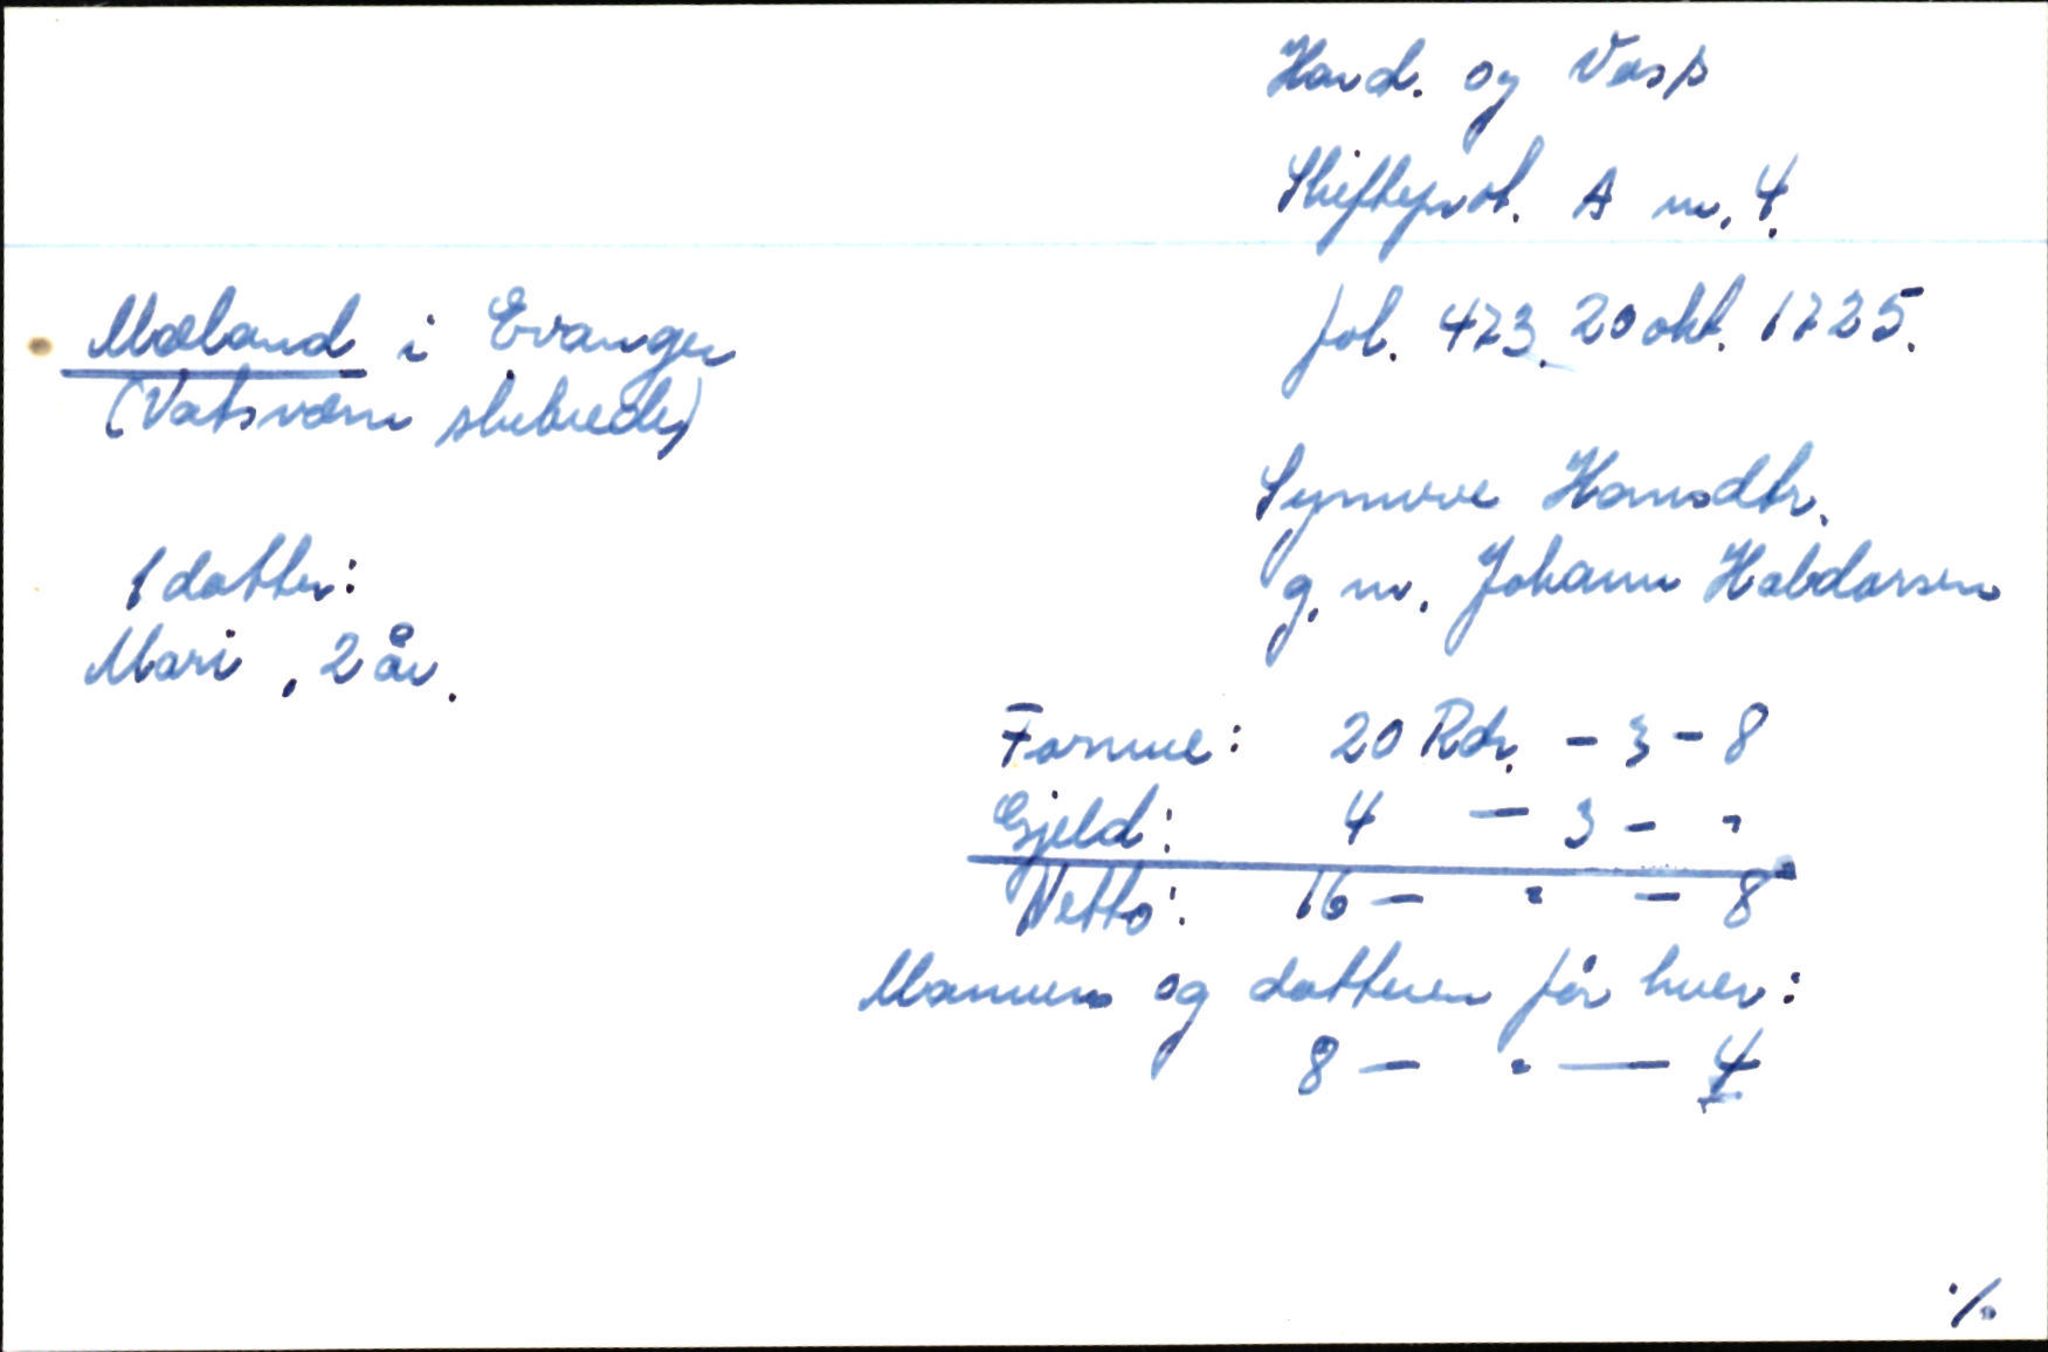 Hard. og Voss
Skifteprot. A nr. 4.
fol. 473. 20 okt. 1725.
Mæland i Evanger
(Vatsvørn skibrede)
Synnve Hansdtr.
g. m. Johann Haldorsen
1 datter:
Mari, 2 år.
Formue: 20 Rdr. - 3 - 8
Gjeld: 4 - 3 - "
Netto: 16 - " - 8
Mannen og datteren får hver:
8 - " - 4
./.